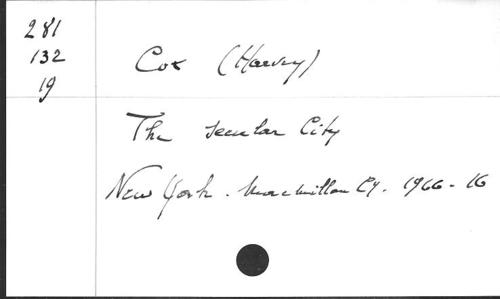 281
132
19
Cox (Harvey)
The secular City
New York. Macmillan Cy. 1966 - 16